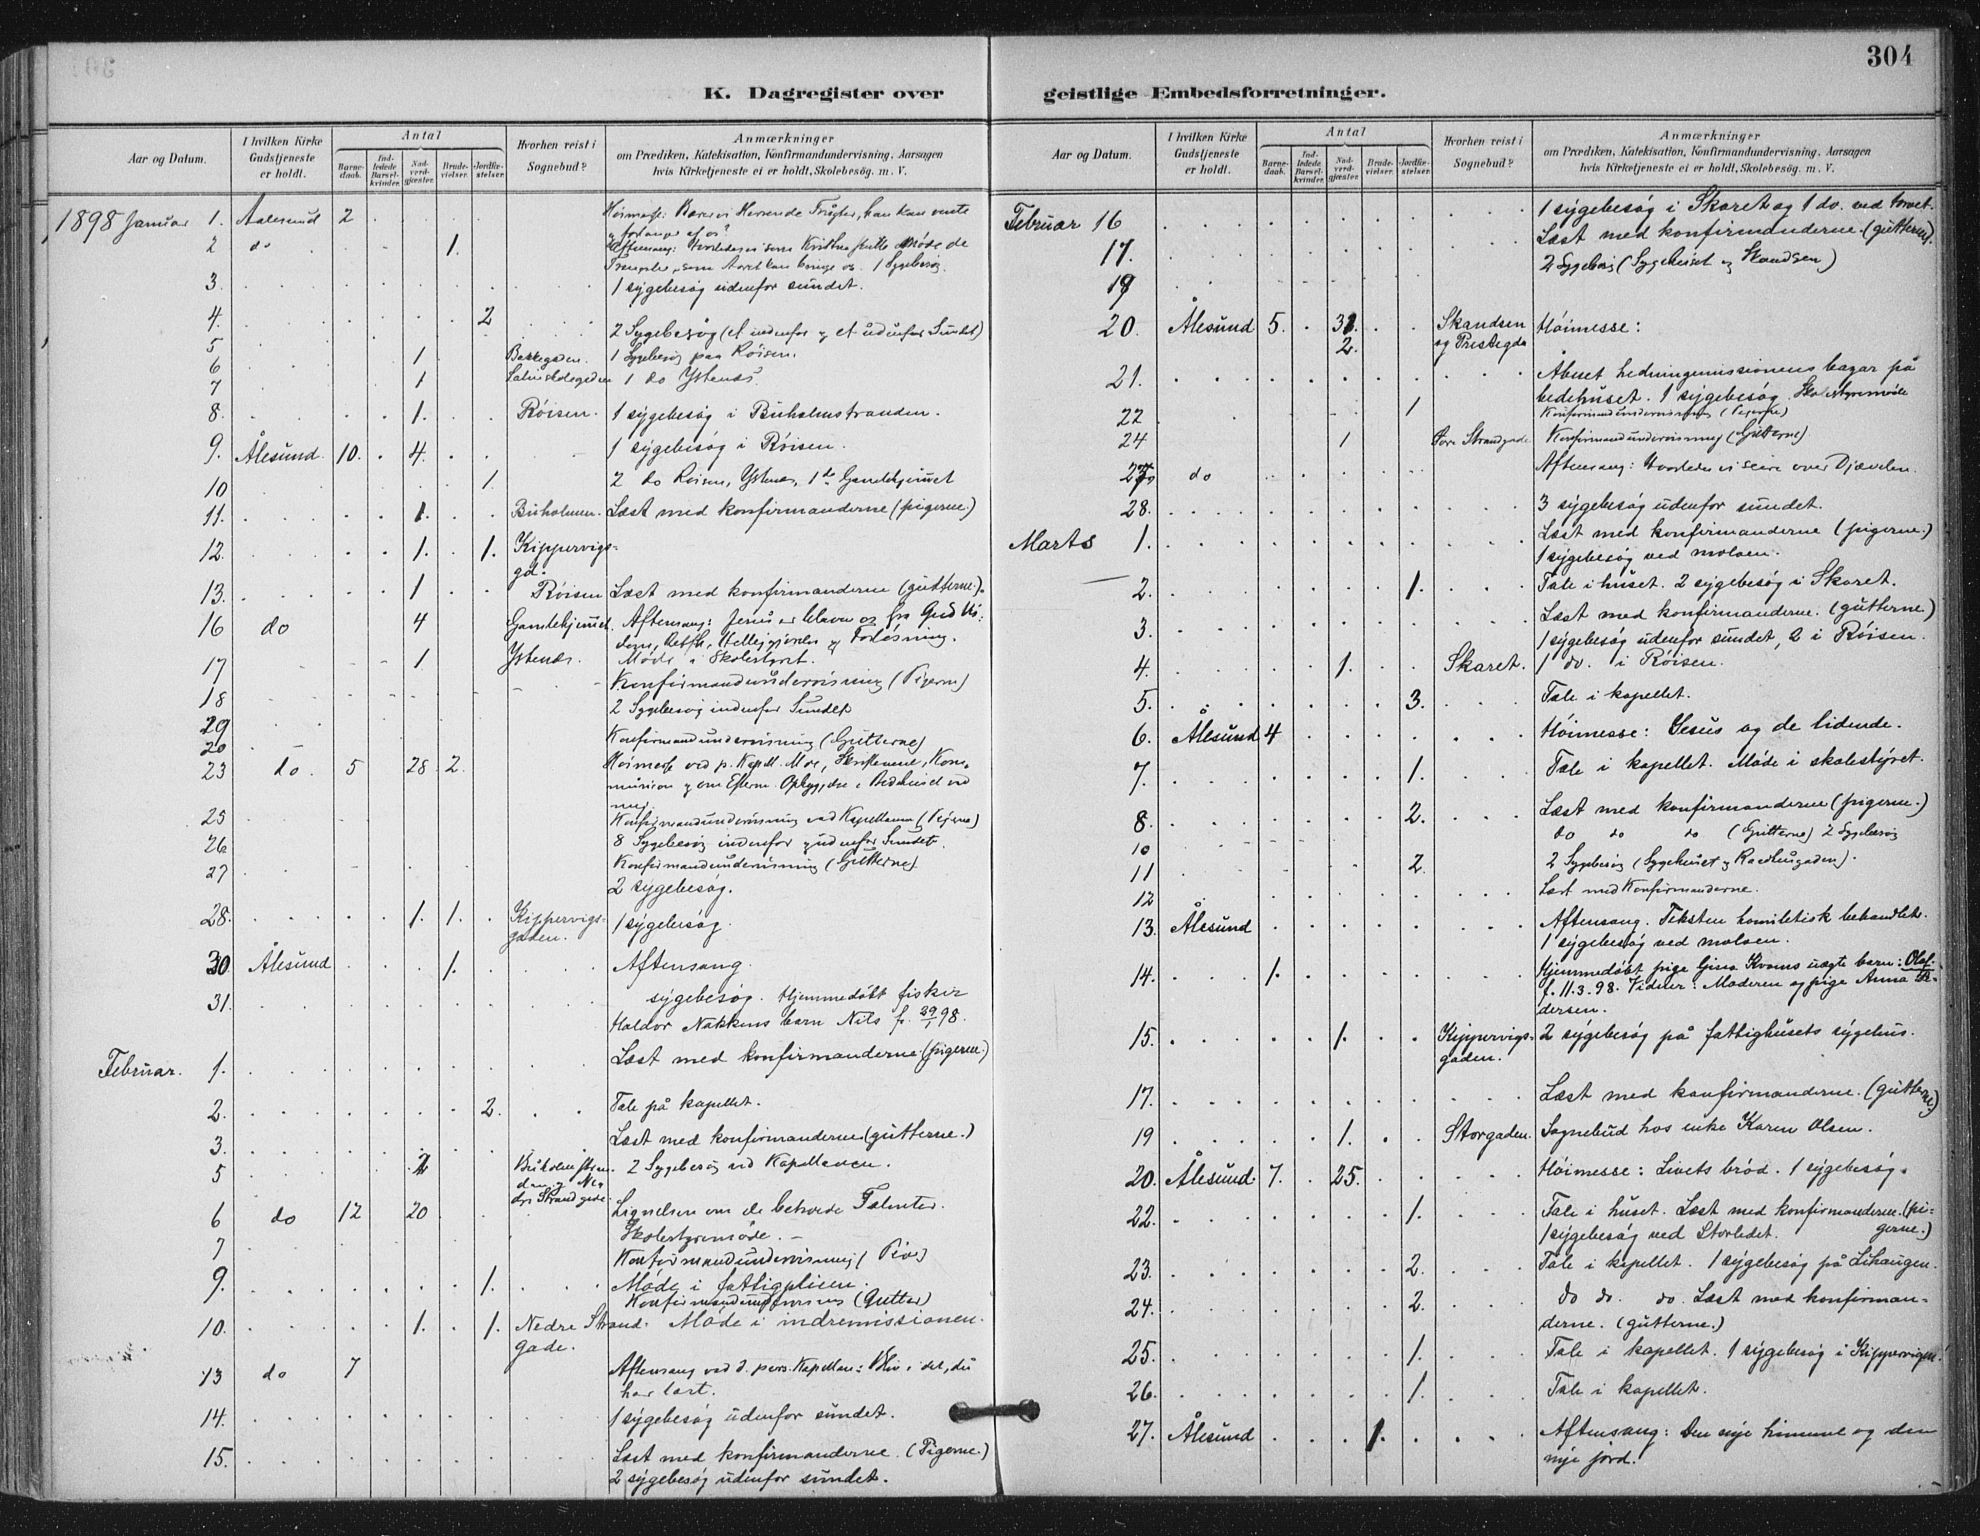 304
K. Dagregister over geistlige Embedsforretninger.
Aar og Datum.
I hvilken Kirke Gudstjeneste er holdt.
Antal
Barnedaab.
Indledede Barselkvinder.
Nadverdgjæster.
Brudevielser.
Jordfæstelser.
Hvorhen reist i Sognebud?
Anmærkninger
om Prædiken, Katekisation, Konfirmandundervisning, Aarsagen
hvis Kirketjeneste ei er holdt, Skolebesög. m. V.
1898 Januar 1. Aalesund 2 Høimesse:
2 do 1. Aftensang:
1 Sygebesøg
3. 1 sygebesøg udenfor sundet.
4. 2 2 Sygebesøg (et indenfor og et udenfor Sundet)
5 1 1 Sygebesøg paa Røisen.
6
7 1 1 do Ystenæs.
8. 1. Røisen. 1 sygebesøg i Buholmstranden.
9. Ålesund. 10. 4. 1 sygebesøg i Røisen.
10 1. 2 do Røisen, Ystenæs, 1 do Gamlehjemet
11. 1. Buholmen. Læst med konfirmanderne (pigerne.)
12. 1. 1. Kippervigs-
gd.
13. 1 Røisen Læst med konfirmanderne (gutterne.)
16 do 4 Gamlehjemet. Aftensang: Jesus er bleven os fra Gud Vis:
dom, Retfh., Helliggjørelse og Forløsning.
17 1 Ystenæs. Møde i Skolestyret.
18 Konfirmandundervisning (Pigerne)
2 Sygebesøg indenfor Sundet
20 Konfirmandundervisning (Gutterne)
23 do. 5 28 2. Høimesse ved p. Kapell. Moe, Skriftemaal, Kom-
munion og om Efterm. Opbyggelse i Bedehuset ved
mig.
25 Konfirmandundervisning ved Kapellanen (Pigerne)
26 8 Sygebesøg indenfor og udenfor Sundet.
27 Konfirmandundervisning (Gutterne)
2 sygebesøg.
28. 1. 1. Kippervigs-
gaden. 1 sygebesøg.
30 Ålesund 1. Aftensang.
31. sygebesøg. Hjemmedøbt fisker
Haldor Nakkens barn Nils f. 29/1 98.
Februar. 1. Læst med konfirmanderne (pigerne.)
2. 2. Tale på kapellet.
3. Læst med konfirmanderne (gutterne.)
5 2 2 Sygebesøg ved Kapellanen.
6 do 12 20 Lignelsen om de betroede Talenter.
7 Skolestyremøde.
Konfirmandundervisning (Piger)
9. 1. Møde i fattigplejen.
Konfirmandundervisning (Gutter)
10. 1. 1. Nedre Strand Møde i indremissionen.
gade.
13 do 7 Aftensang ved d. pers. Kapellan: Bliv i det, du
har lært.
14. 1 sygebesøg udenfor sundet.
15. Læst med konfirmanderne. (Pigerne.)
2 sygebesøg udenfor sundet.
Aar og Datum.
I hvilken Kirke Gudstjeneste er holdt.
Antal
Barnedaab.
Indledede Barselkvinder.
Nadverdgjæster.
Brudevielser.
Jordfæstelser.
Hvorhen reist i Sognebud?
Anmærkninger
om Prædiken, Katekisation, Konfirmandundervisning, Aarsagen
hvis Kirketjeneste ei er holdt, Skolebesög. m. V.
Februar 16 1 sygebesøg i Skaret og 1 do. ved torvet.
17. Læst med konfirmanderne. (gutterne).
19 2 Sygebesøg (Sygehuset og Skandsen)
20. Ålesund 5. 31. Skandsen Høimesse:
2. og Prestegda
21. Åbnet hedningemissionens bazar på
bedehuset. 1 sygebesøg. Skolestyremøde
22 1 Konfirmandundervisning (Pigerne)
24 1 Øvre Strandgade Konfirmandundervisning (Gutterne).
27 do Aftensang: Hvorledes vi seire over Djævelen.
28. 3 sygebesøg udenfor sundet.
Marts 1. Læst med konfirmanderne (pigerne.)
1 sygebesøg ved moloen.
2. 1. Tale i huset. 2 sygebesøg i Skaret.
3. Læst med konfirmanderne. (gutterne)
1 sygebesøg udenfor sundet, 2 i Røisen.
4. 1. Skaret. 1 do. i Røisen.
5. 3. Tale i kapellet.
6. Ålesund 4 Høimesse: Jesus og de lidende.
7. 1. Tale i kapellet. Møde i skolestyret.
8. 2. Læst med konfirmanderne (pigerne.)
10 do do do (Gutterne) 2 Sygebesøg
11 2. 2 Sygebesøg (Sygehuset og Raadhusgaden).
12 Læst med Konfirmanderne.
13. Ålesund Aftensang. Teksten homiletisk behandlet.
1 sygebesøg ved moloen.
14. 1. Hjemmedøbt pige Gina Kvams uægte barn: Olaf
f. 11.3.98. Vidner: Moderen og pige Anna Pe-
dersen.
15. 1. Kippervigs- 2 sygebesøg på fattighusets sygehus.
gaden.
17. Læst med konfirmanderne. (gutterne)
19 1. Storgaden. Sognebud hos enke Karen Olsen.
20. Ålesund. 7. 25. Høimesse: Livets brød. 1 sygebesøg.
22. 1. Tale i huset. Læst med konfirmanderne. (pi-
1 sygebesøg ved Storledet. gerne.)
23. 2. Tale i kapellet. 1 sygebesøg på Lihaugen.
24. 2. do do. do. Læst med konfirman-
derne. (gutterne.)
25. 1. Tale i kapellet. 1 sygebesøg i Kippervigen.
26. 1. Tale i kapellet.
27. Ålesund 1. Aftensang: Den nye himmel og den
nye jord.